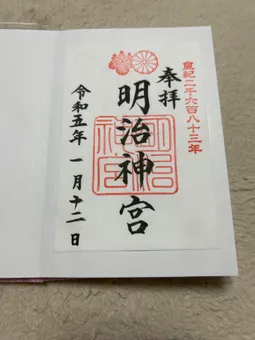 皇紀二千六百八十三年
奉拝
明治神宮
令和五年一月十二日